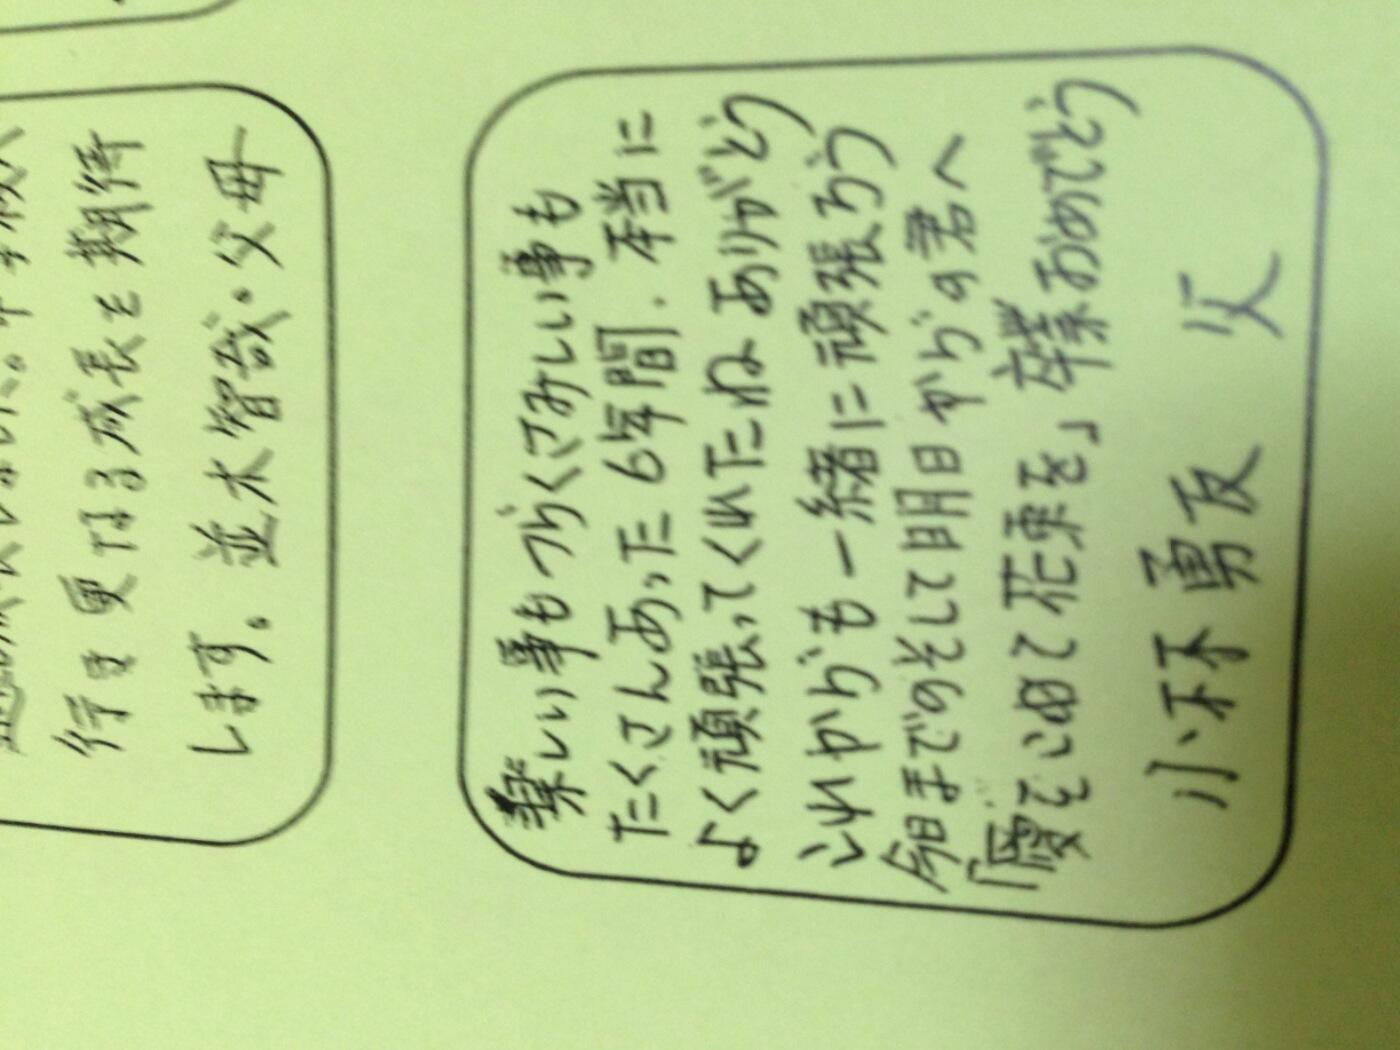 行き更なる成長を期待
します。並木智哉・父母
楽しい事もつらくさみしい事も
たくさんあった6年間、本当に
よく頑張ってくれたねありがとう
これからも一緒に頑張ろう
今日までのそして明日からの君へ
「愛をこめて花束を」卒業おめでとう
小林勇友 父